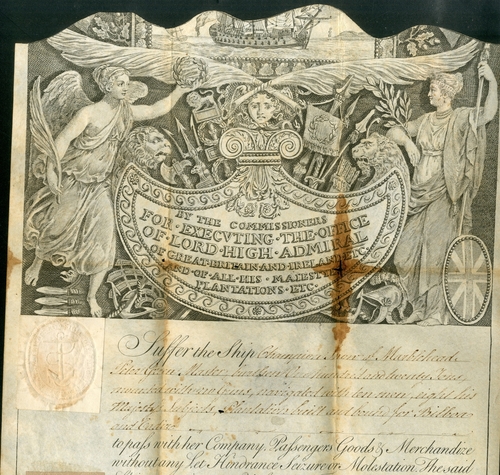 BY THE COMMISSIONERS
FOR · EXECVTING · THE · OFFICE
OF · LORD · HIGH · ADMIRAL
OF GREAT · BRITAIN AND IRELAND ETC
AND · OF · ALL · HIS · MAJESTYS
PLANTATIONS · ETC ·
Suffer the Ship Champion Snow of Marblehead
Peter Green Master burthen One hundred and twenty Tons
mounted with Guns, navigated with ten men, eight his
Majestys Subjects, Plantation built and bound for Bilboa
and Cadiz
to pass with her Company, Passengers Goods & Merchandize
without any Let Hindrance Seizure or Molestation. The said